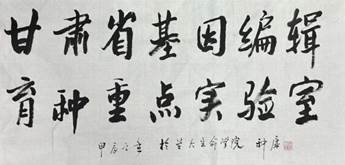 甘肃省基因编辑
育种重点实验室
甲辰之冬 于兰大生命学院 科庭